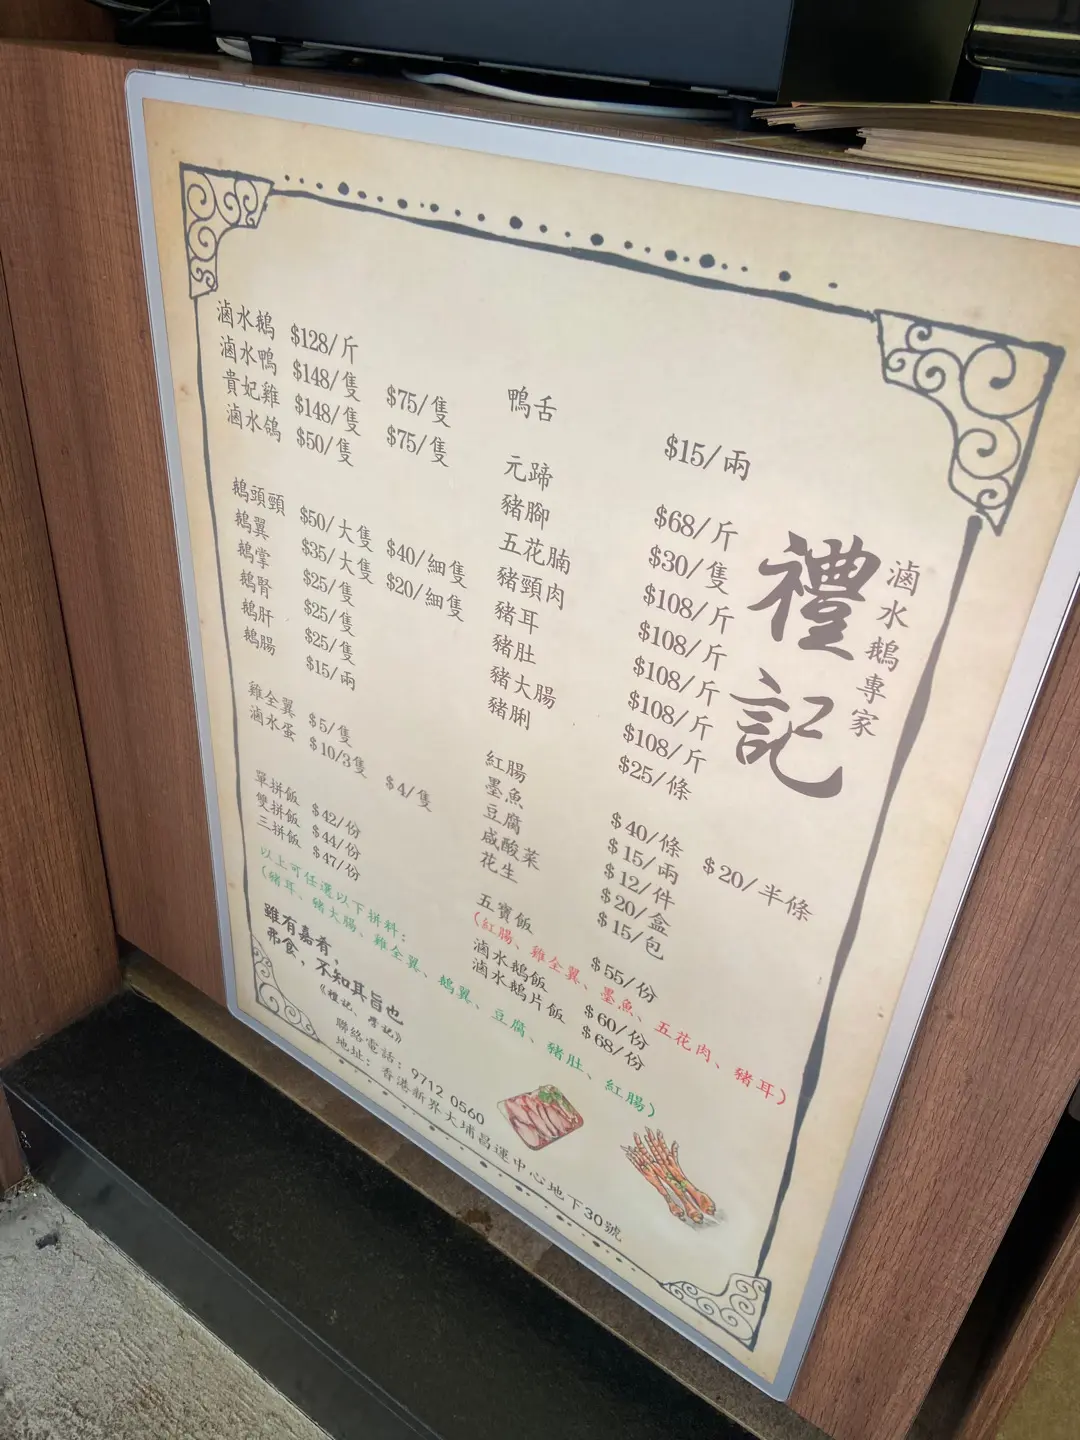 滷水鵝 $128/斤
滷水鴨 $148/隻 $75/隻
貴妃雞 $148/隻 $75/隻
滷水鴿 $50/隻
鵝頭頸 $50/大隻 $40/細隻
鵝翼 $35/大隻 $20/細隻
鵝掌 $25/隻
鵝腎 $25/隻
鵝肝 $25/隻
鵝腸 $15/兩
雞全翼 $5/隻
滷水蛋 $10/3隻 $4/隻
單拼飯 $42/份
雙拼飯 $44/份
三拼飯 $47/份
以上可任選以下拼料:
(豬耳、豬大腸、雞全翼、鵝翼、豆腐、豬肚、紅腸)
雖有嘉肴,
弗食,不知其旨也
《禮記、學記》
聯絡電話: 9712 0560
地址: 香港新界大埔昌運中心地下30號
鴨舌 $15/兩
元蹄 $68/斤
豬腳 $30/隻
五花腩 $108/斤
豬頸肉 $108/斤
豬耳 $108/斤
豬肚 $108/斤
豬大腸 $108/斤
豬脷 $25/條
紅腸 $40/條 $20/半條
墨魚 $15/兩
豆腐 $12/件
咸酸菜 $20/盒
花生 $15/包
五寶飯 $55/份
(紅腸、雞全翼、墨魚、五花肉、豬耳)
滷水鵝飯 $60/份
滷水鵝片飯 $68/份
禮記
滷水鵝專家